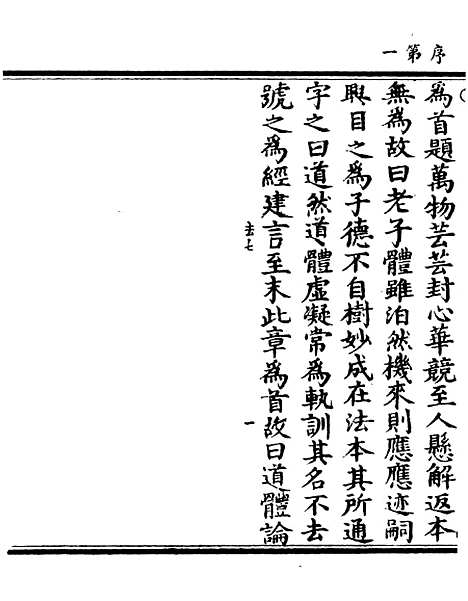 序第一
為首題萬物芸芸封心華競至人懸解返本
無為故曰老子體雖泊然機來則應應迹嗣
興目之為子德不自樹妙成在法本其所通
字之曰道然道體虛凝常為軌訓其名不去
號之為經建言至末此章為首故曰道體論
去七
一